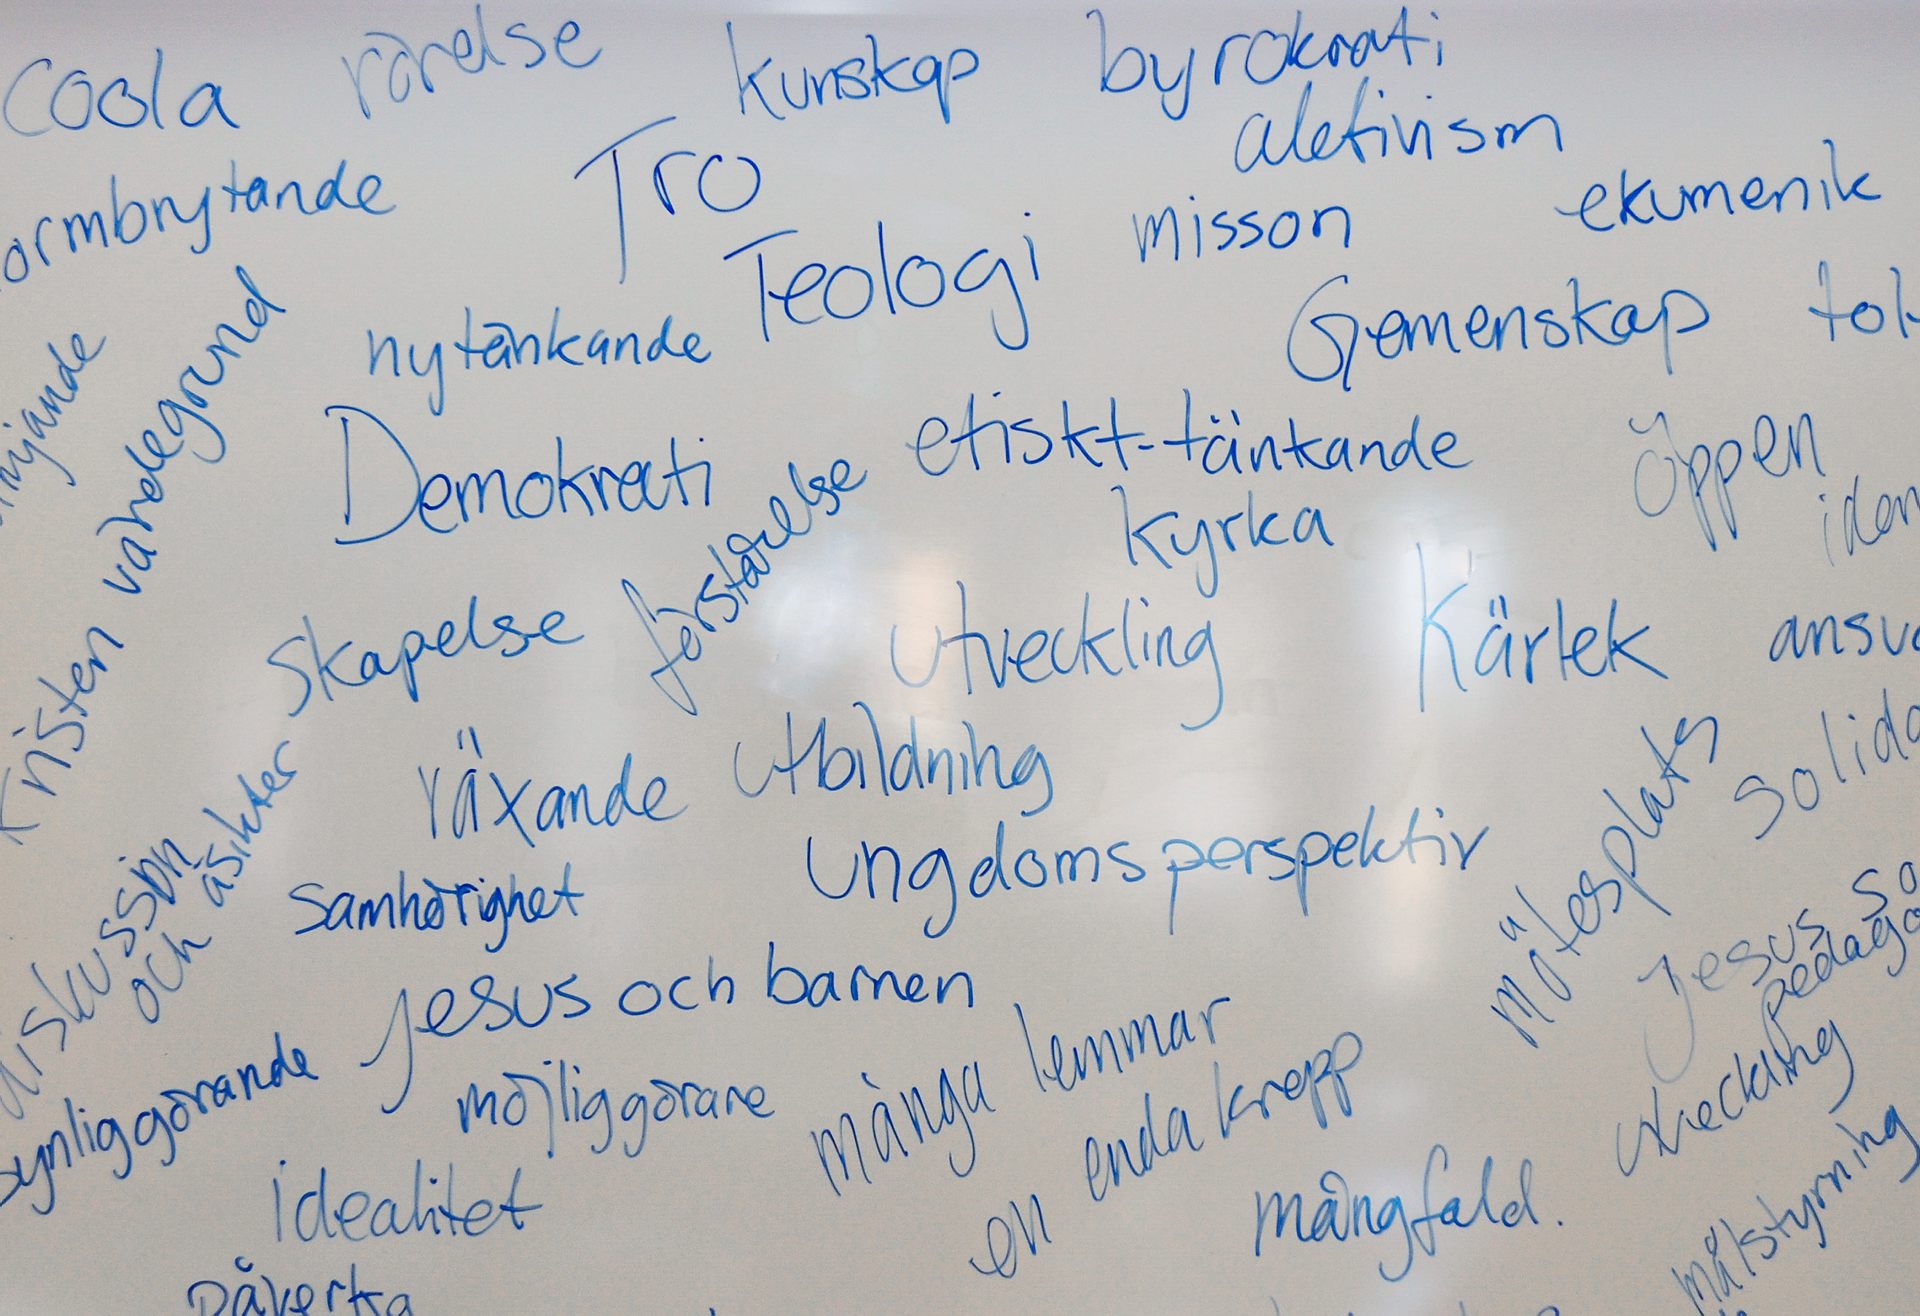 Coola rörelse kunskap byrokrati
aktivism
ormbrytande Tro misson ekumenik
Teologi
nytänkande Gemenskap tol
Kristen värdegrund
Demokrati etiskt-tänkande öppen
förståelse kyrka iden
skapelse utveckling Kärlek ansva
växande utbildning solida
diskussion
och åsikter
samhörighet ungdomsperspektiv mötesplats
Jesus so
pedago
Jesus och barnen
synliggörande möjliggörare många lemmar
en enda kropp
utveckling
idealitet mångfald.
målstyrning
Påverka